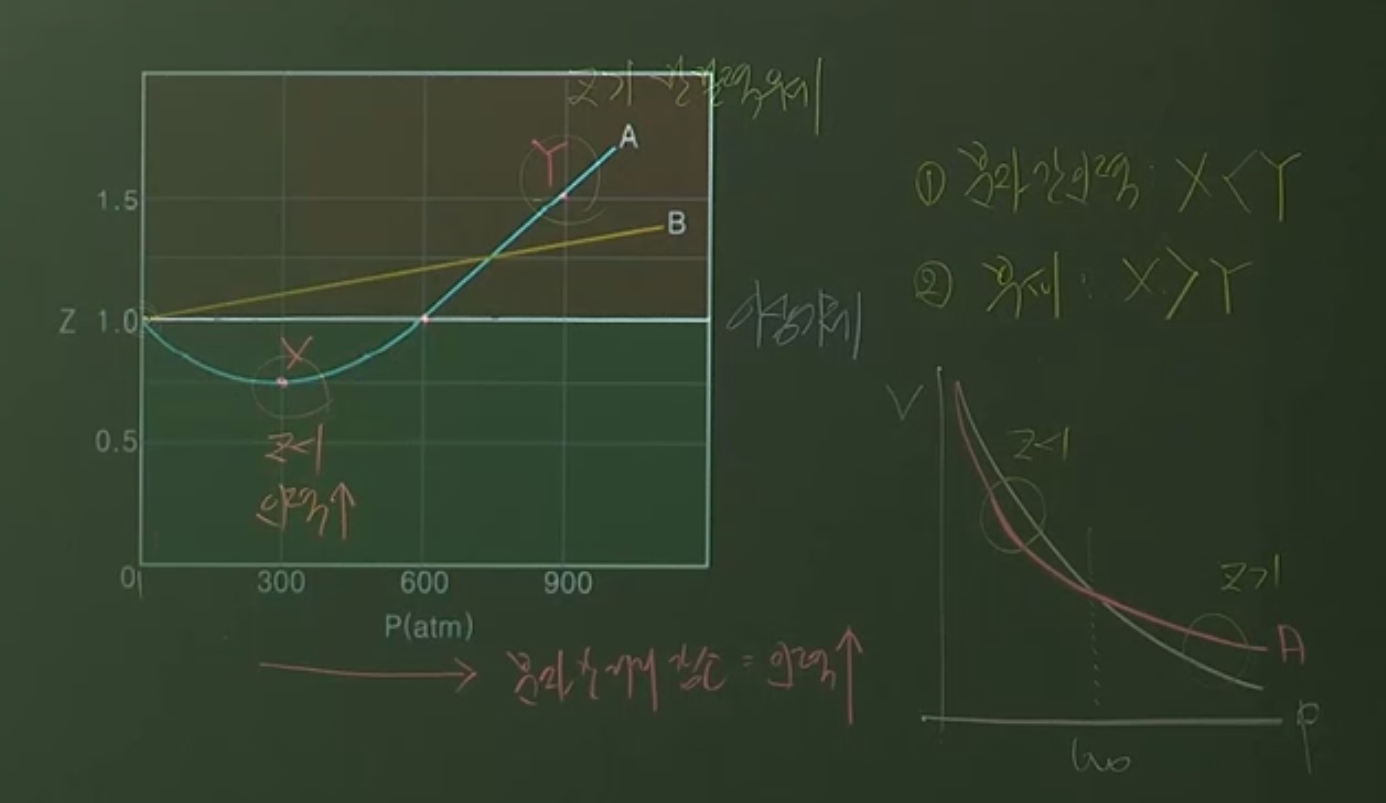 Z>1 반발력 우세
A
Y
1.5
B
Z 1.0
이상기체
X
0.5
Z<1
인력↑
0
300 600 900
P(atm)
→ 분자간 거리 감소 = 인력↑
① 분자간 인력: X<Y
② 부피: X>Y
V
Z<1
Z>1
A
P
600